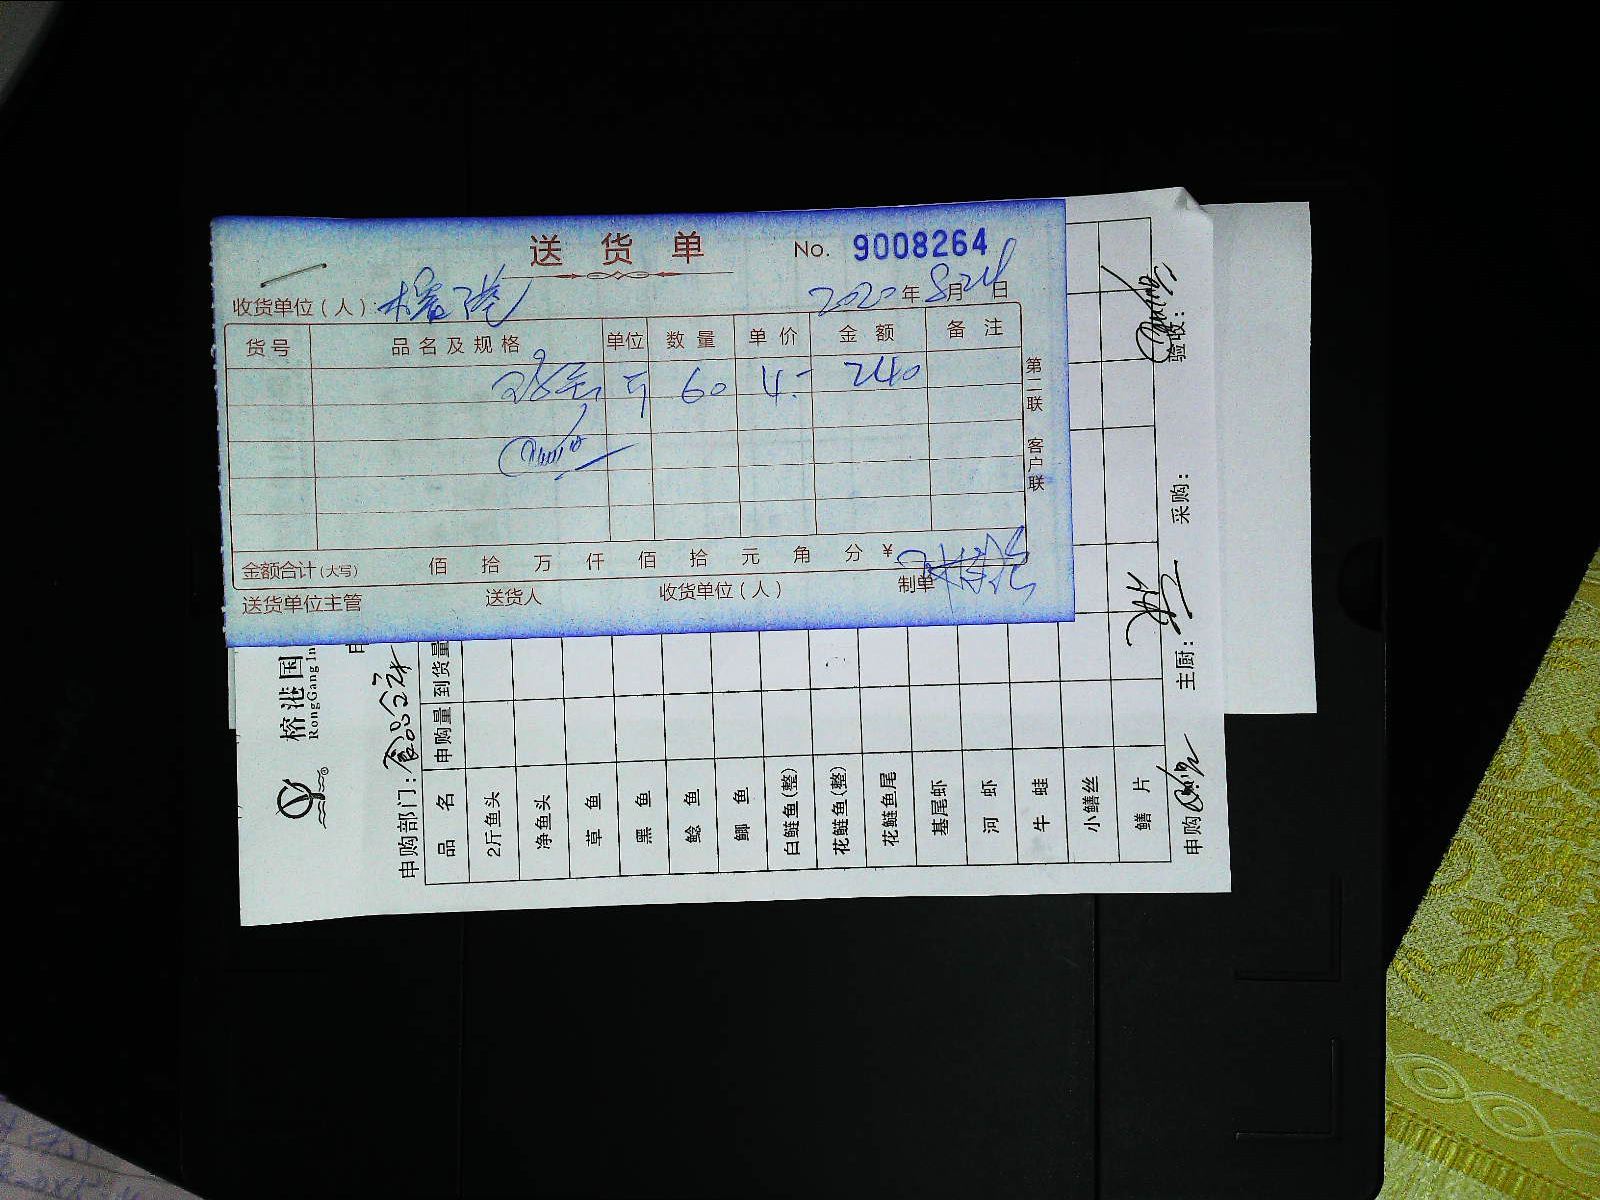 送货单 No. 9008264
收货单位（人）：榕港 2020年8月24日
货号 品名及规格 单位 数量 单价 金额 备注
斤 60 4.- 240
第二联 客户联
金额合计(大写) 佰 拾 万 仟 佰 拾 元 角 分 ¥
送货单位主管 送货人 收货单位（人） 制单
榕港国
RongGang In
申购部门：
品名 申购量 到货量
2斤鱼头
净鱼头
草鱼
黑鱼
鲶鱼
鲫鱼
白鲢鱼(整)
花鲢鱼(整)
花鲢鱼尾
基尾虾
河虾
牛蛙
小鳝丝
鳝片
申购 主厨： 采购： 验收：